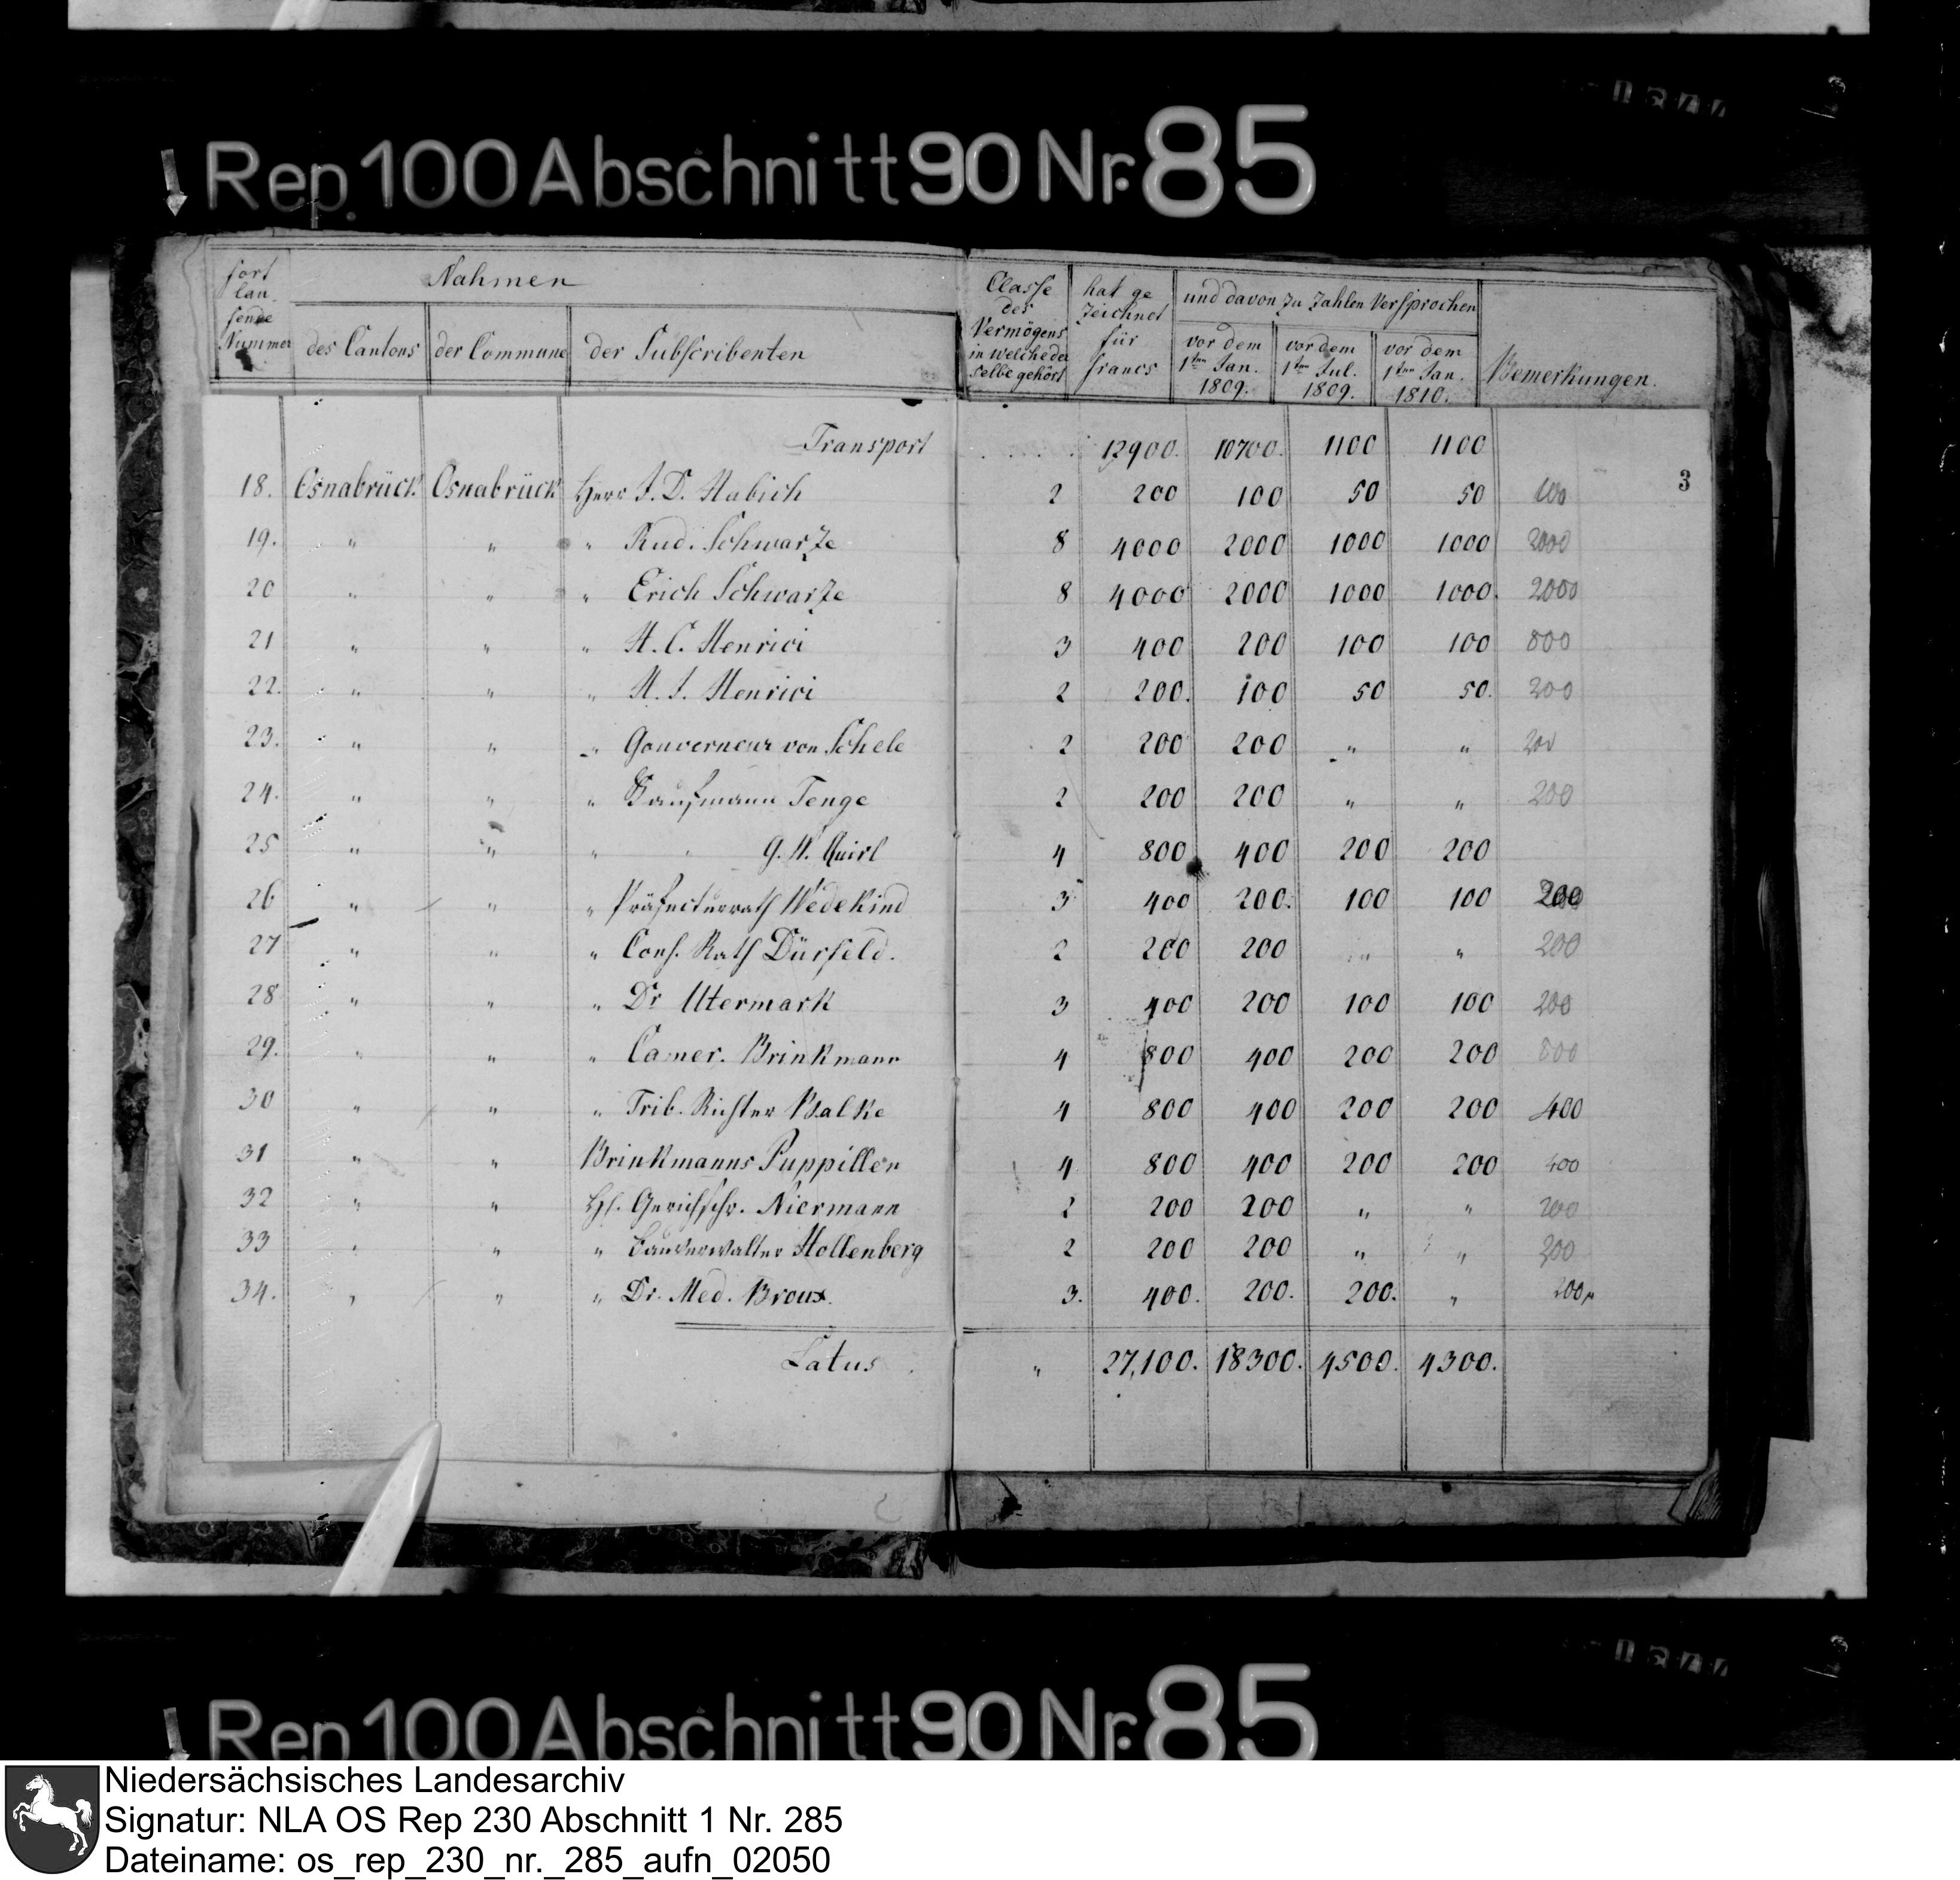 Rep. 100 Abschnitt 90 Nr. 85
fort
lau-
fende
Nummer
Nahmen
des Cantons
der Commune
der Subscribenten
Classe
des
Vermögens
in welche der
selbe gehört
hat ge
zeichnet
für
francs
und davon zu zahlen versprochen
vor dem
1ten Jan.
1809.
vor dem
1ten Jul.
1809.
vor dem
1ten Jan.
1810.
Bemerkungen.
Transport 12900. 10700. 1100 1100
3
18. Osnabrück Osnabrück Herr J. D. Habich 2 200 100 50 50 100
19. " " " Rud. Schwarze 8 4000 2000 1000 1000 2000
20 " " " Erich Schwarze 8 4000 2000 1000 1000. 2000
21 " " " H. C. Henrici 3 400 200 100 100 800
22. " " " H. J. Henrici 2 200. 100 50 50. 200
23. " " " Gouverneur von Schele 2 200 200 " " 200
24. " " " Kaufmann Tenge 2 200 200 " " 200
25 " " " " G. H. Quirl 4 800 400 200 200
26 " " " Präfecturrath Wedekind 3 400 200. 100 100 200
27 " " " Cons. Rath Dürfeld. 2 200 200 " " 200
28 " " " Dr Utermark 3 400 200 100 100 200
29. " " " Camer. Brinkmann 4 800 400 200 200 800
30 " " " Trib. Richter Balke 4 800 400 200 200 400
31 " " Brinkmanns Puppillen 4 800 400 200 200 400
32 " " H. Gerichtschr. Niermann 2 200 200 " " 200
33 " " " Bauverwalter Hollenberg 2 200 200 " " 200
34. " " " Dr. Med. Broux. 3. 400. 200. 200. " 200
Latus " 27,100. 18300. 4500. 4300.
Rep. 100 Abschnitt 90 Nr. 85
Niedersächsisches Landesarchiv
Signatur: NLA OS Rep 230 Abschnitt 1 Nr. 285
Dateiname: os_rep_230_nr._285_aufn_02050